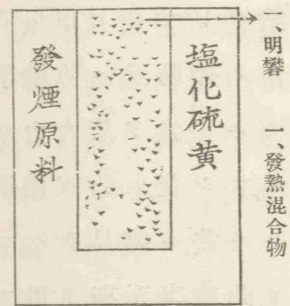 一、明礬
一、發熱混合物
塩化硫黄
發煙原料